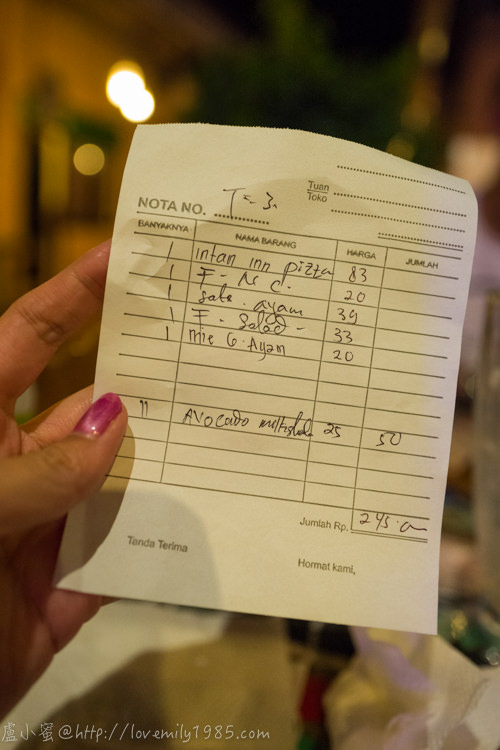 Tuan
Toko
NOTA NO. T = 3.
BANYAKNYA NAMA BARANG HARGA JUMLAH
1 intan inn pizza 83
1 F - N C. 20
1 Sate. ayam 39
1 F. Salad - 33
1 mie G. Ayam 20
11 Avocado 25 50
Jumlah Rp. 245.
Tanda Terima
Hormat kami,
盧小蜜@http://lovemily1985.com